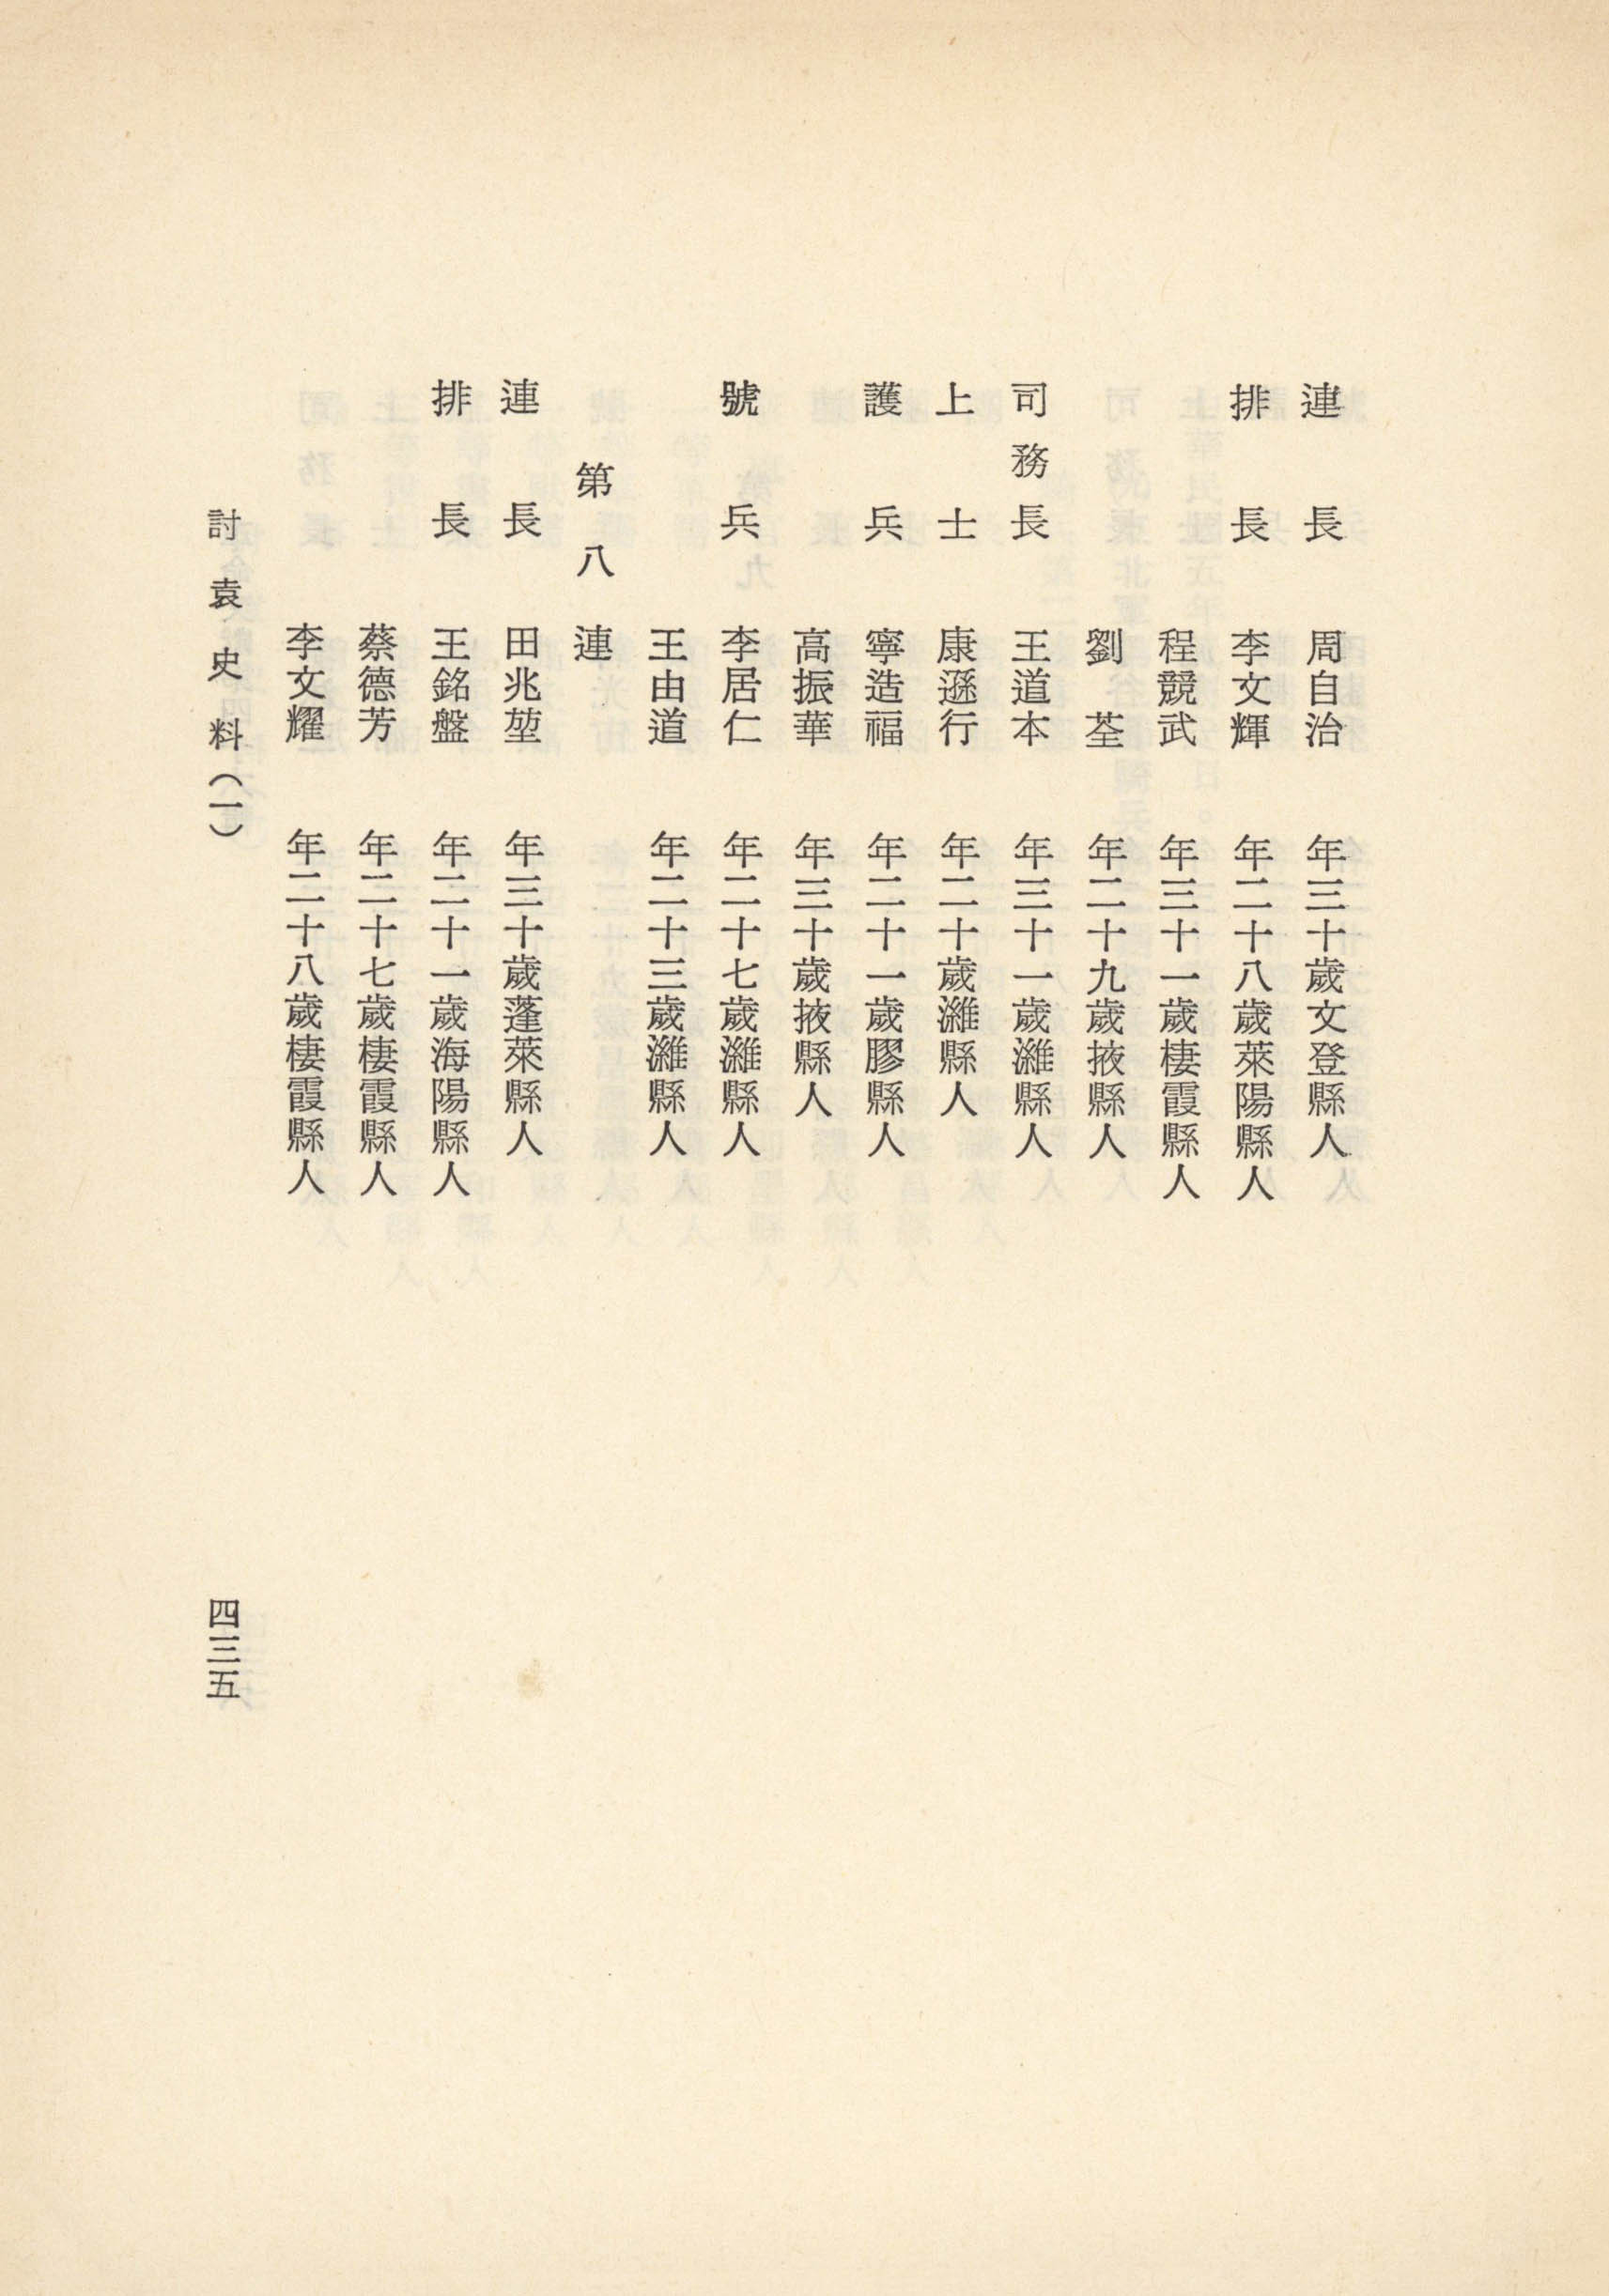 連長　周自治　年三十歲文登縣人
排長　李文輝　年二十八歲萊陽縣人
程競武　年三十一歲棲霞縣人
劉荃　年二十九歲掖縣人
司務長　王道本　年三十一歲濰縣人
上士　康遜行　年二十歲濰縣人
護兵　寧造福　年二十一歲膠縣人
高振華　年三十歲掖縣人
號兵　李居仁　年二十七歲濰縣人
王由道　年二十三歲濰縣人
第八連
連長　田兆堃　年三十歲蓬萊縣人
排長　王銘盤　年二十一歲海陽縣人
蔡德芳　年二十七歲棲霞縣人
李文耀　年二十八歲棲霞縣人
討袁史料（一）
四三五